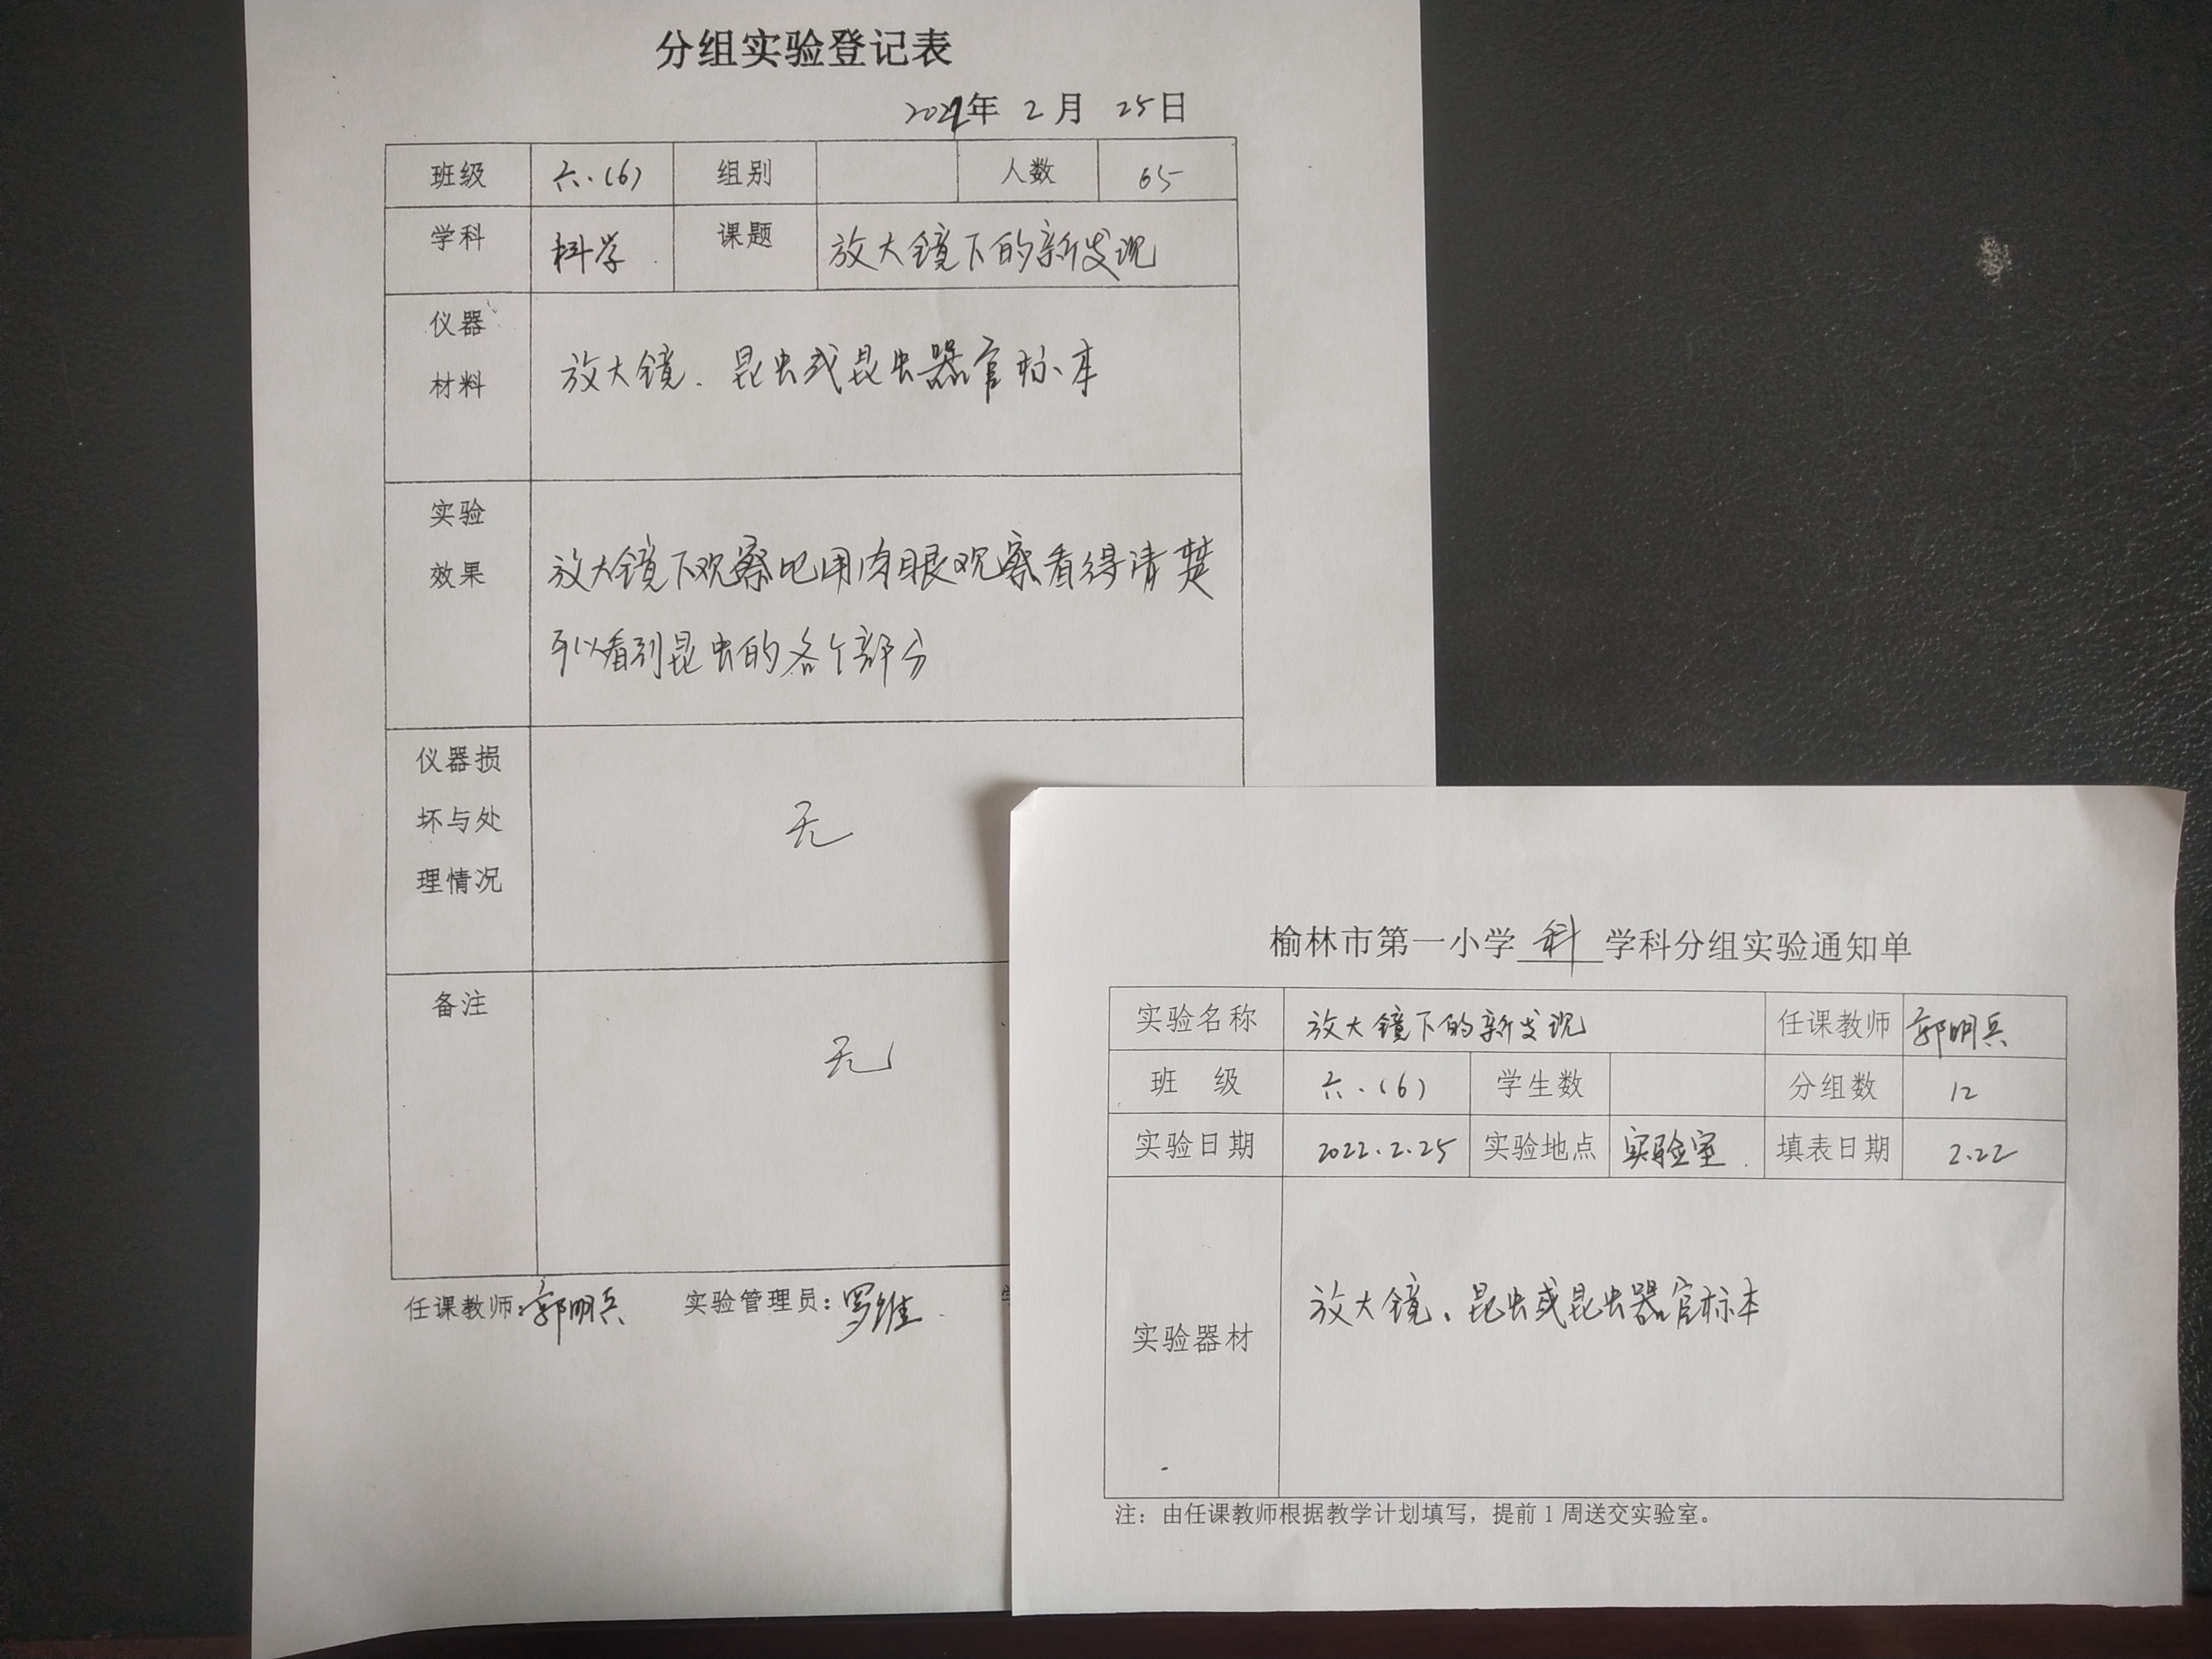 分组实验登记表
2022年 2月 25日
班级 六.(6) 组别 人数 65
学科 科学 课题 放大镜下的新发现
仪器
材料
放大镜、昆虫或昆虫器官标本
实验
效果
放大镜下观察比用肉眼观察看得清楚
可以看到昆虫的各个部分
仪器损
坏与处
理情况
无
备注
无
任课教师:郭明兵 实验管理员:罗维
榆林市第一小学 科 学科分组实验通知单
实验名称 放大镜下的新发现 任课教师 郭明兵
班 级 六.(6) 学生数 分组数 12
实验日期 2022.2.25 实验地点 实验室 填表日期 2.22
实验器材
放大镜、昆虫或昆虫器官标本
注：由任课教师根据教学计划填写，提前1周送交实验室。